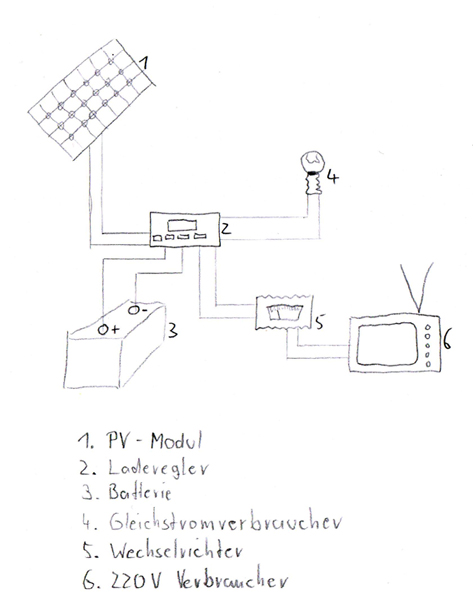 1
2
4
+
-
3
5
6
1. PV-Modul
2. Laderegler
3. Batterie
4. Gleichstromverbraucher
5. Wechselrichter
6. 220V Verbraucher